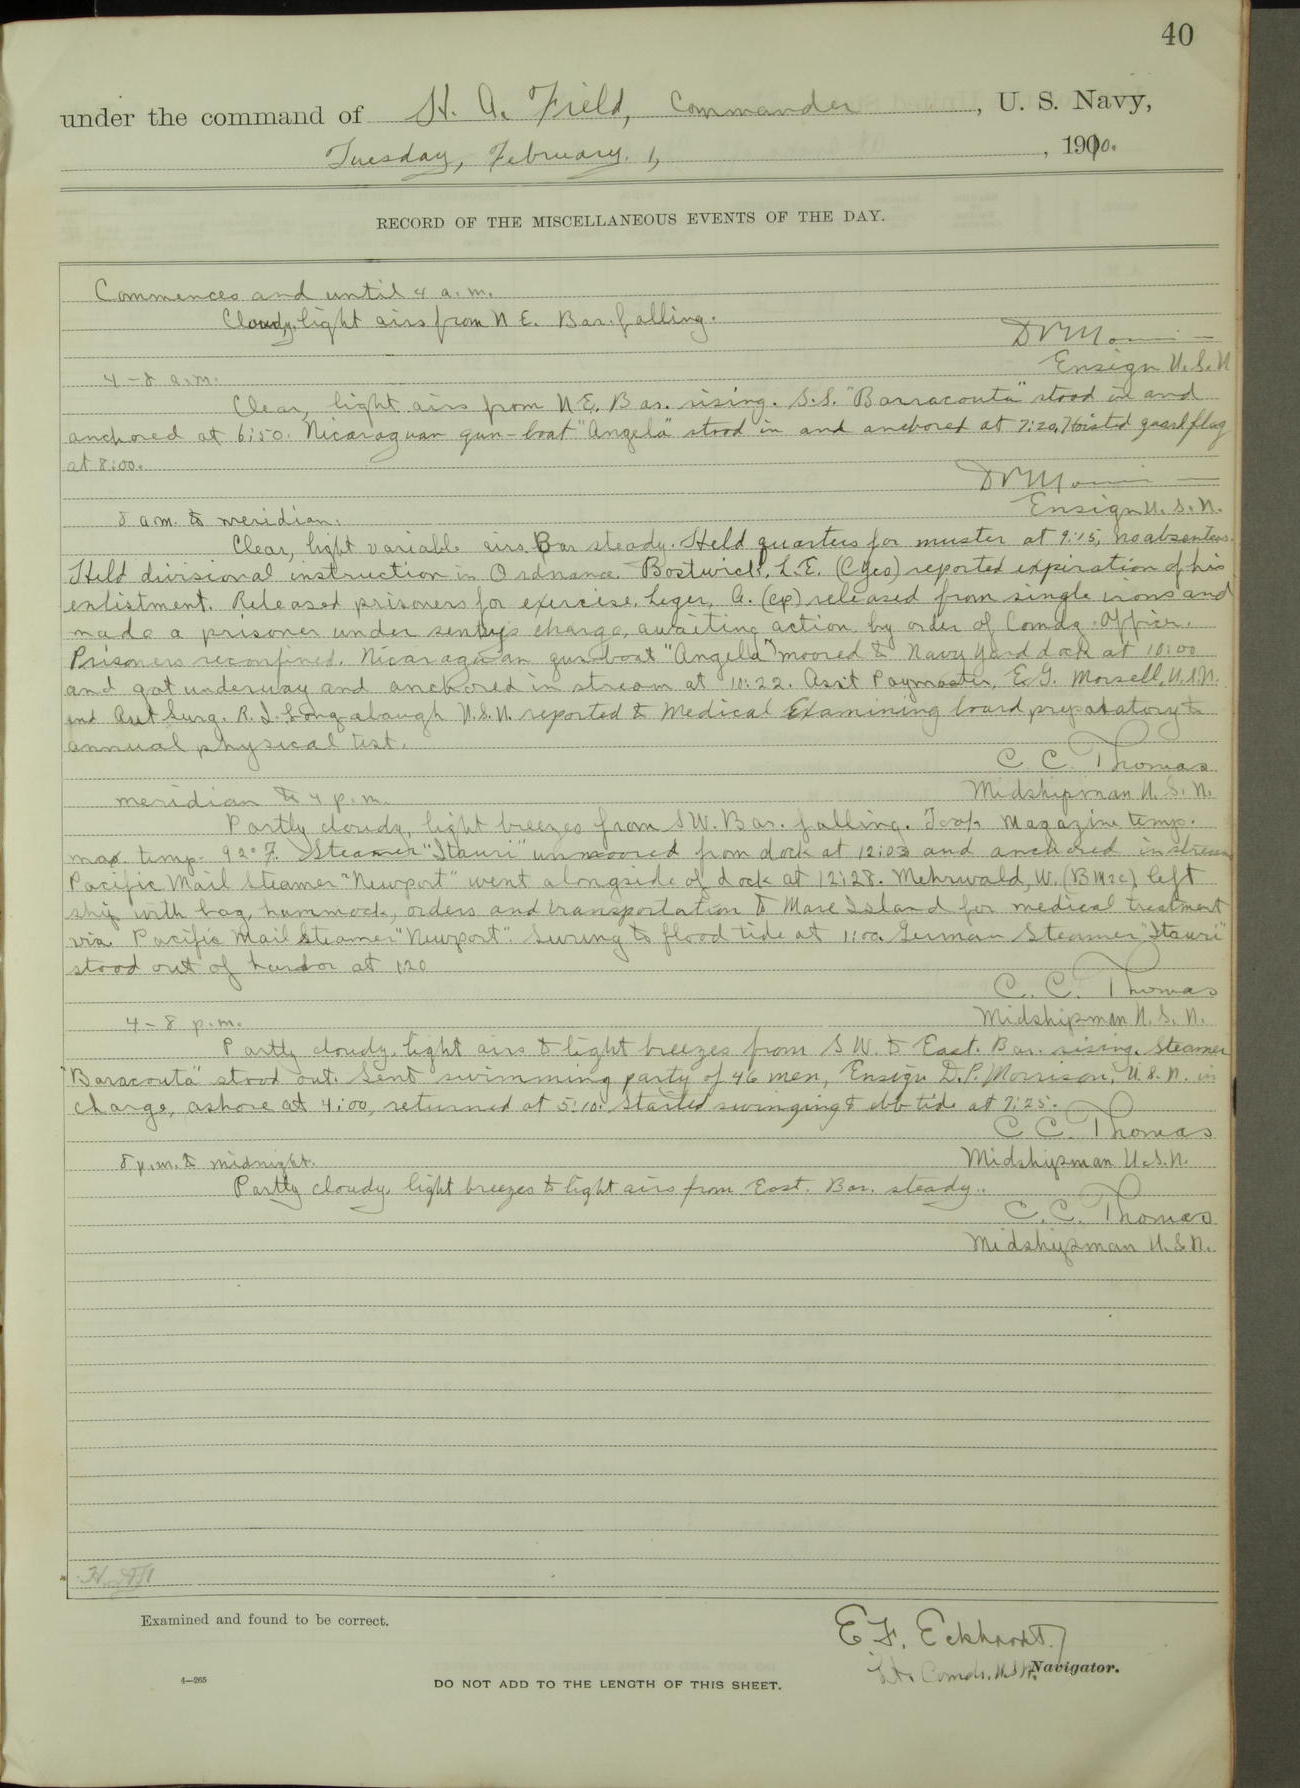 40
under the command of H. A. Field, Commander, U. S. Navy,
Tuesday, February 1, 1910.
RECORD OF THE MISCELLANEOUS EVENTS OF THE DAY.
Commences and until 4 a.m.
Cloudy, light airs from N E. Bar. falling.
Ensign U.S.N
4-8 a.m.
Clear, light airs from N E. Bar. rising. S.S. "Barracouta" stood in and
anchored at 6:50. Nicaraguan gun-boat "Angela" stood in and anchored at 7:20. Hoisted guard flag
at 8:00.
Ensign U.S.N.
8 a.m. to meridian.
Clear, light variable airs. Bar steady. Held quarters for muster at 9:15, no absentees.
Held divisional instruction in Ordnance. Bostwick, L.E. (Cyeo) reported expiration of his
enlistment. Released prisoners for exercise. Leger, A. (cp) released from single irons and
made a prisoner under sentry's charge, awaiting action by order of Comdg. Officer.
Prisoners reconfined. Nicaraguan gun boat "Angela" moored to Navy Yard dock at 10:00
and got underway and anchored in stream at 10:22. Ass't Paymaster, E.G. Morsell, U.S.N.
and Asst Surg. R.I. Longabaugh U.S.N. reported to Medical Examining board preparatory to
annual physical test.
C. C. Thomas
Midshipman U. S. N.
meridian to 4 p.m.
Partly cloudy, light breezes from SW. Bar. falling. Magazine temp.
max. temp. 92° F. Steamer "Itauri" unmoored from dock at 12:03 and anchored in stream
Pacific Mail Steamer "Newport" went alongside of dock at 12:28. Mehrwald, W. (BM2c) left
ship with bag, hammock, orders and transportation to Mare Island for medical treatment
via Pacific Mail Steamer "Newport". Swung to flood tide at 1:00. German Steamer "Itauri"
stood out of harbor at 1:20
C. C. Thomas
Midshipman U. S. N.
4-8 p.m.
Partly cloudy, light airs to light breezes from S W. to East. Bar. rising. Steamer
"Baracouta" stood out. Sent swimming party of 46 men, Ensign D.P. Morrison, U.S.N. in
charge, ashore at 4:00, returned at 5:10. Started swinging to ebb tide at 7:25.
C C. Thomas
Midshipman U.S.N.
8 p.m. to midnight.
Partly cloudy, light breezes to light airs from East. Bar. steady.
C. C. Thomas
Midshipman U.S.N.
Examined and found to be correct.
E. F. Eckhardt
Lt. Comdr. U.S.N. Navigator.
4-265
DO NOT ADD TO THE LENGTH OF THIS SHEET.